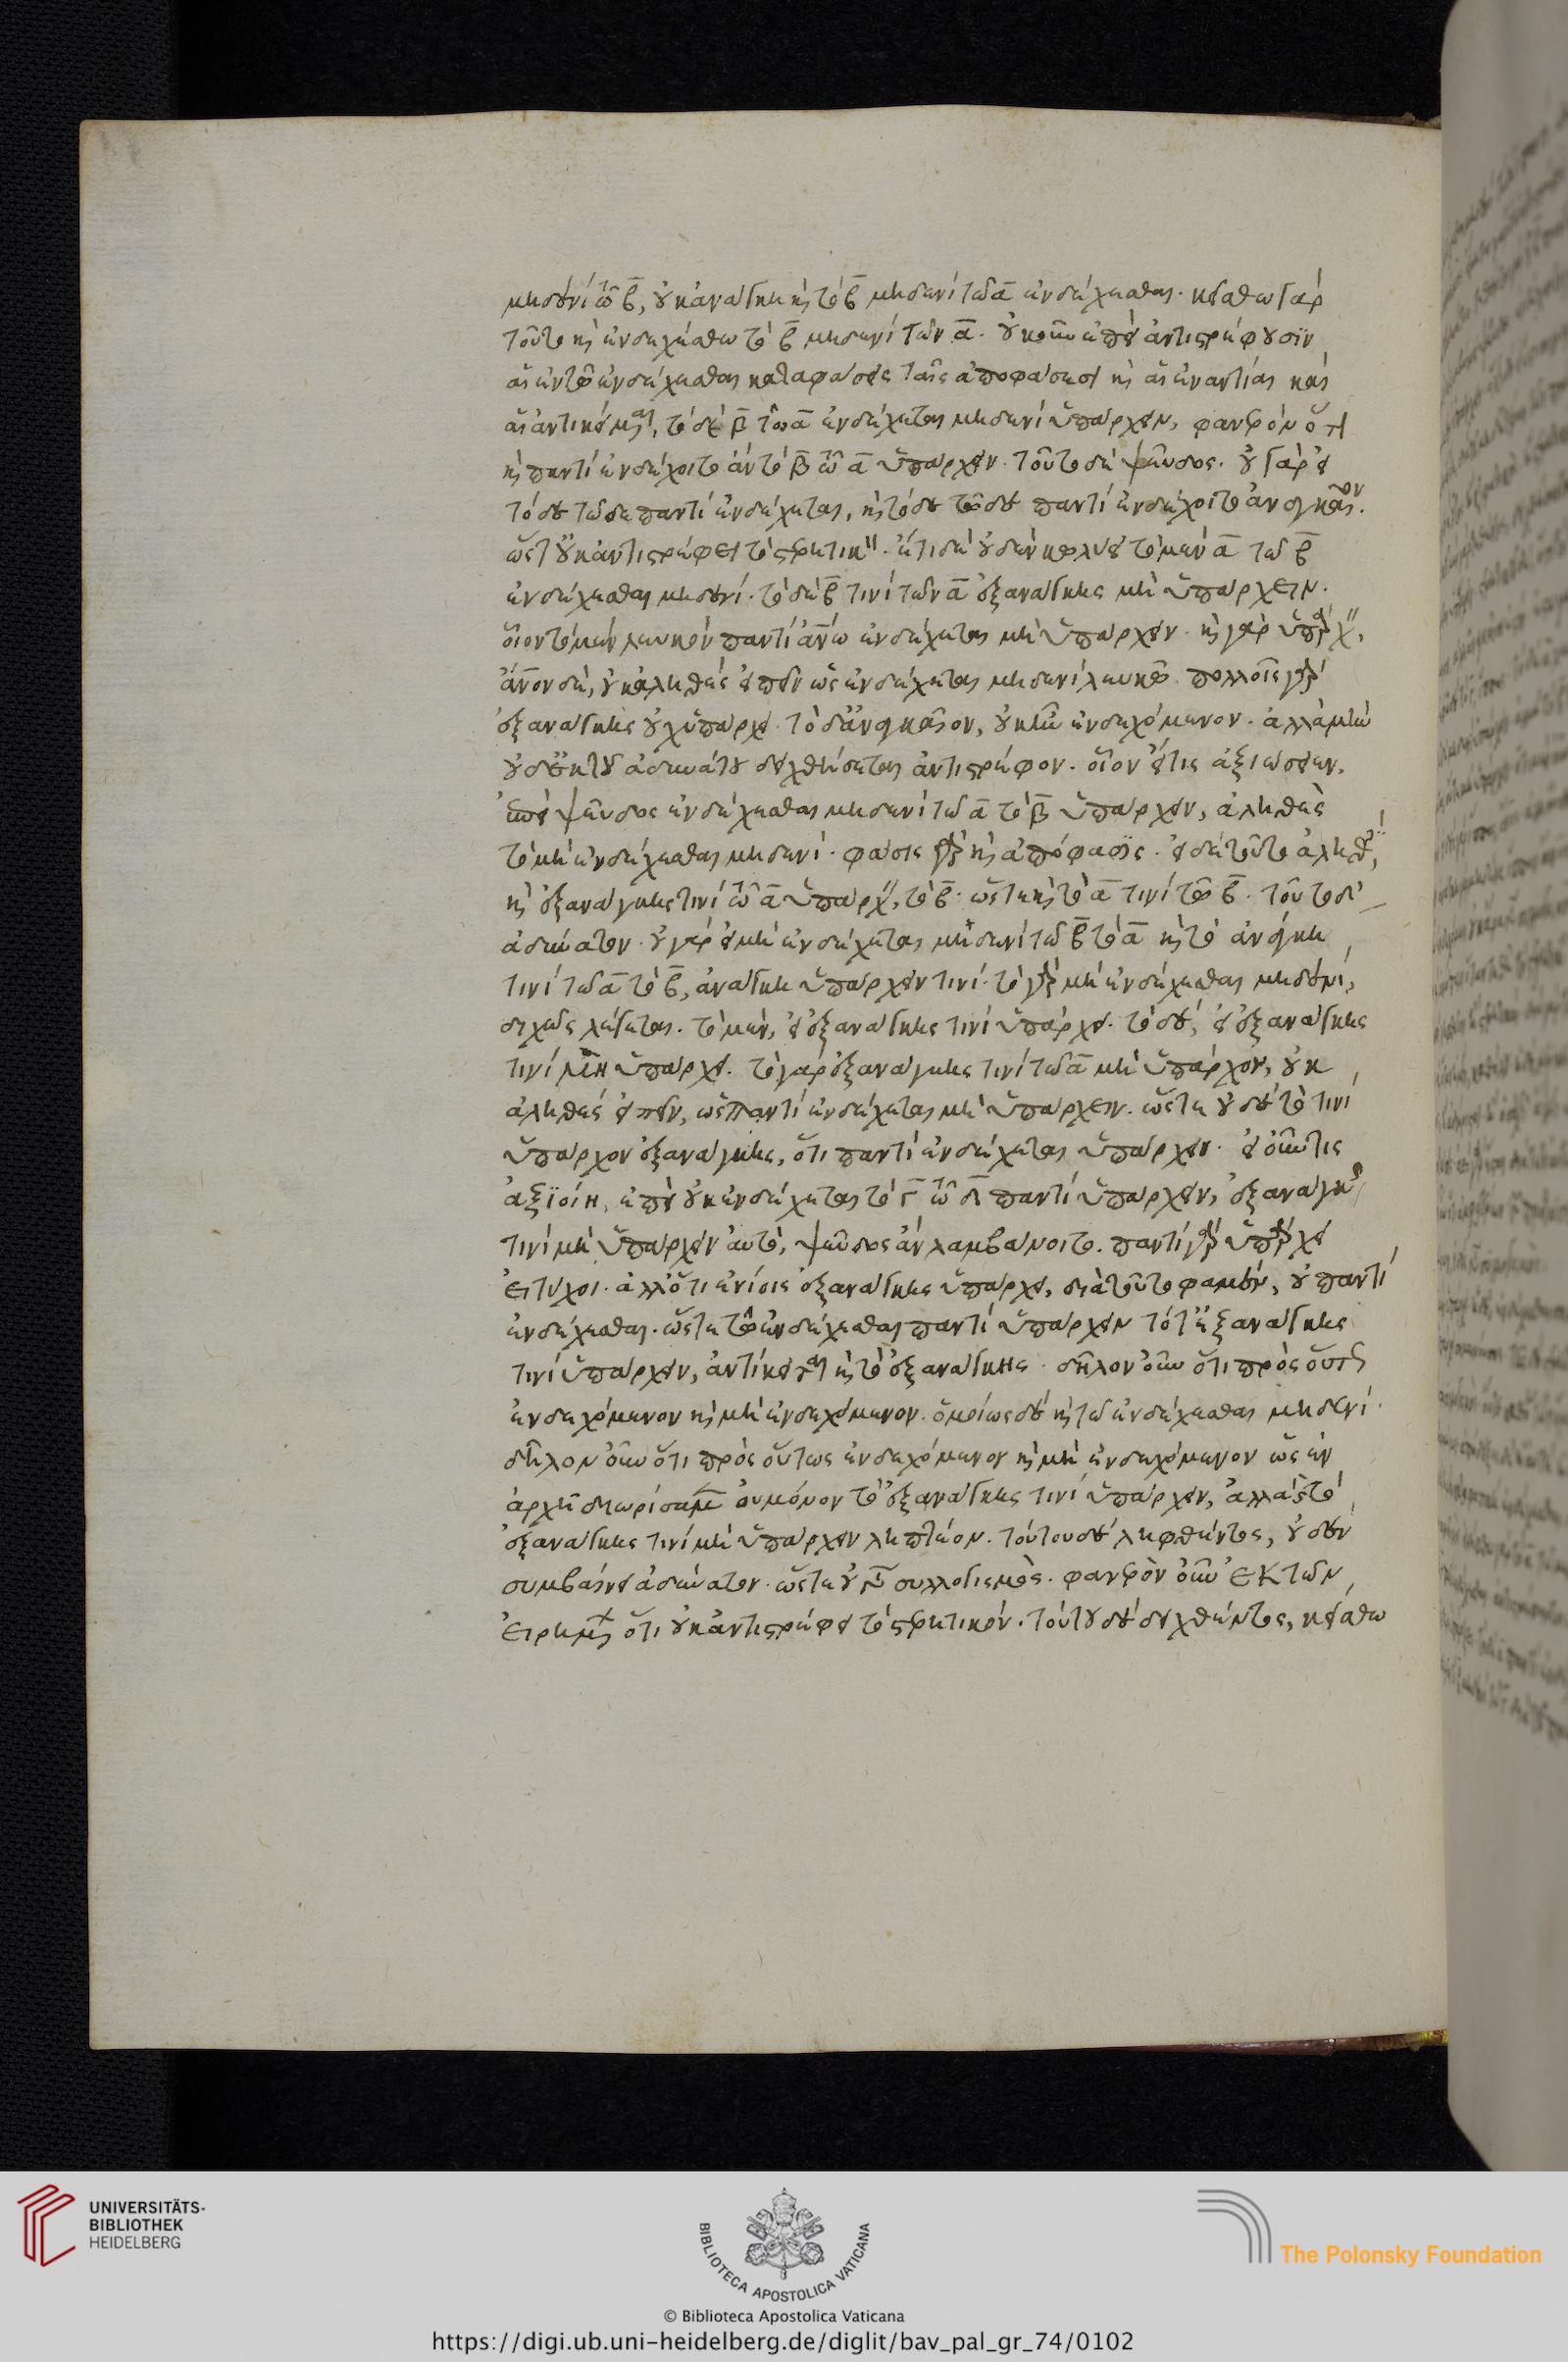 μηδενὶ τῶ β̅, οὐκ ἀνάγκη καὶ τὸ β̅ μηδενὶ τῶ α̅ ἐνδέχεσθαι. κείσθω γὰρ
τοῦτο καὶ ἐνδεχέσθω τὸ β̅ μηδενὶ τῶν α̅. οὐκοῦν ἐπεὶ ἀντιστρέφουσϊν
αἱ ἐν τῶ ἐνδέχεσθαι καταφάσεις ταῖς ἀποφάσεσι καὶ αἱ ἐναντίαι καὶ
αἱ ἀντικείμεναι, τὸ δὲ β̅ τῶ α̅ ἐνδέχεται μηδενὶ ὑπάρχειν, φανερὸν ὅτι
καὶ παντὶ ἐνδέχοιτο ἂν τὸ β̅ τῶ α̅ ὑπάρχειν. τοῦτο δὲ ψεῦδος. οὐ γὰρ εἰ
τόδε τῶδε παντὶ ἐνδέχεται, καὶ τόδε τῶδε παντὶ ἐνδέχοιτο ἀναγκαῖον.
ὥστ' οὐκ ἀντιστρέφει τὸ στερητικόν. ἔτι δὲ οὐδὲν κωλύει τὸ μὲν α̅ τῶ β̅
ἐνδέχεσθαι μηδενί. τὸ δὲ β̅ τινὶ τῶν α̅ ἐξ ἀνάγκης μὴ ὑπάρχειν.
οἷον τὸ μὲν λευκὸν παντὶ ἀν̅ω ἐνδέχεται μὴ ὑπάρχειν. καὶ γὰρ ὑπάρχειν,
ἄν̅ον δὲ, οὐκ ἀληθὲς εἰπεῖν ὡς ἐνδέχεται μηδενὶ λευκῶ. πολλοῖς γὰρ
ἐξ ἀνάγκης οὐχ ὑπάρχει. τὸ δ' ἀναγκαῖον, οὐκ ἦν ἐνδεχόμενον. ἀλλὰ μὴν
οὐδ' ἐκ τοῦ ἀδυνάτου δειχθήσεται ἀντιστρέφον. οἷον εἴ τις ἀξιώσειεν,
ἐπεὶ ψεῦδος ἐνδέχεσθαι μηδενὶ τῶ α̅ τὸ β̅ ὑπάρχειν, ἀληθὲς
τὸ μὴ ἐνδέχεσθαι μηδενί. φάσις γὰρ καὶ ἀπόφασϊς. εἰ δὲ τοῦτο ἀληθὲς,
καὶ ἐξ ἀνάγκης τινὶ τῶ α̅ ὑπάρχειν, τὸ β̅. ὥστε καὶ τὸ α̅ τινὶ τῶ β̅. τοῦτο δ'
ἀδύνατον. οὐ γὰρ εἰ μὴ ἐνδέχεται μηδενὶ τῶ β̅ τὸ α̅ καὶ τὸ ἀνάγκη
τινὶ τῶ α̅ τὸ β̅, ἀνάγκη ὑπάρχειν τινί. τὸ γὰρ μὴ ἐνδέχεσθαι μηδενὶ,
διχῶς λέγεται. τὸ μὲν, εἰ ἐξ ἀνάγκης τινὶ ὑπάρχει. τὸ δὲ, εἰ ἐξ ἀνάγκης
τινὶ μὴ ὑπάρχει. τὸ γὰρ ἐξ ἀνάγκης τινὶ τῶ α̅ μὴ ὑπάρχον, οὐκ
ἀληθὲς εἰπεῖν, ὡς παντὶ ἐνδέχεται μὴ ὑπάρχειν. ὥστε οὐδὲ τὸ τινὶ
ὑπάρχον ἐξ ἀνάγκης, ὅτι παντὶ ἐνδέχεται ὑπάρχειν. εἰ οὖν τις
ἀξϊοίη, ἐπεὶ οὐκ ἐνδέχεται τὸ γ̅ τῶ δ̅ παντὶ ὑπάρχειν, ἐξ ἀνάγκης
τινὶ μὴ ὑπάρχειν αὐτὸ, ψεῦδος ἂν λαμβάνοιτο. παντὶ γὰρ ὑπάρχει
εἰ τύχοι. ἀλλ' ὅτι ἐνίοις ἐξ ἀνάγκης ὑπάρχει, διὰ τοῦτο φαμὲν, οὐ παντὶ
ἐνδέχεσθαι. ὥστε τῶ ἐνδέχεσθαι παντὶ ὑπάρχειν τό τ' ἐξ ἀνάγκης
τινὶ ὑπάρχειν, ἀντίκειται καὶ τὸ ἐξ ἀνάγκης. δῆλον οὖν ὅτι πρὸς οὕτως
ἐνδεχόμενον καὶ μὴ ἐνδεχόμενον. ὁμοίως δὲ καὶ τῶ ἐνδέχεσθαι μηδενί.
δῆλον οὖν ὅτι πρὸς οὕτως ἐνδεχόμενον καὶ μὴ ἐνδεχόμενον ὡς ἐν
ἀρχῆ διωρίσαμεν οὐ μόνον τὸ ἐξ ἀνάγκης τινὶ ὑπάρχειν, ἀλλὰ καὶ τὸ
ἐξ ἀνάγκης τινὶ μὴ ὑπάρχειν ληπτέον. τούτου δὲ ληφθέντος, οὐδὲν
συμβαίνει ἀδύνατον. ὥστε οὐ γίνεται συλλογισμός. φανερὸν οὖν ἐκ τῶν
εἰρημένων ὅτι οὐκ ἀντιστρέφει τὸ στερητικόν. τούτου δὲ δειχθέντος, κείσθω
UNIVERSITÄTS-
BIBLIOTHEK
HEIDELBERG
BIBLIOTECA APOSTOLICA VATICANA
The Polonsky Foundation
© Biblioteca Apostolica Vaticana
https://digi.ub.uni-heidelberg.de/diglit/bav_pal_gr_74/0102